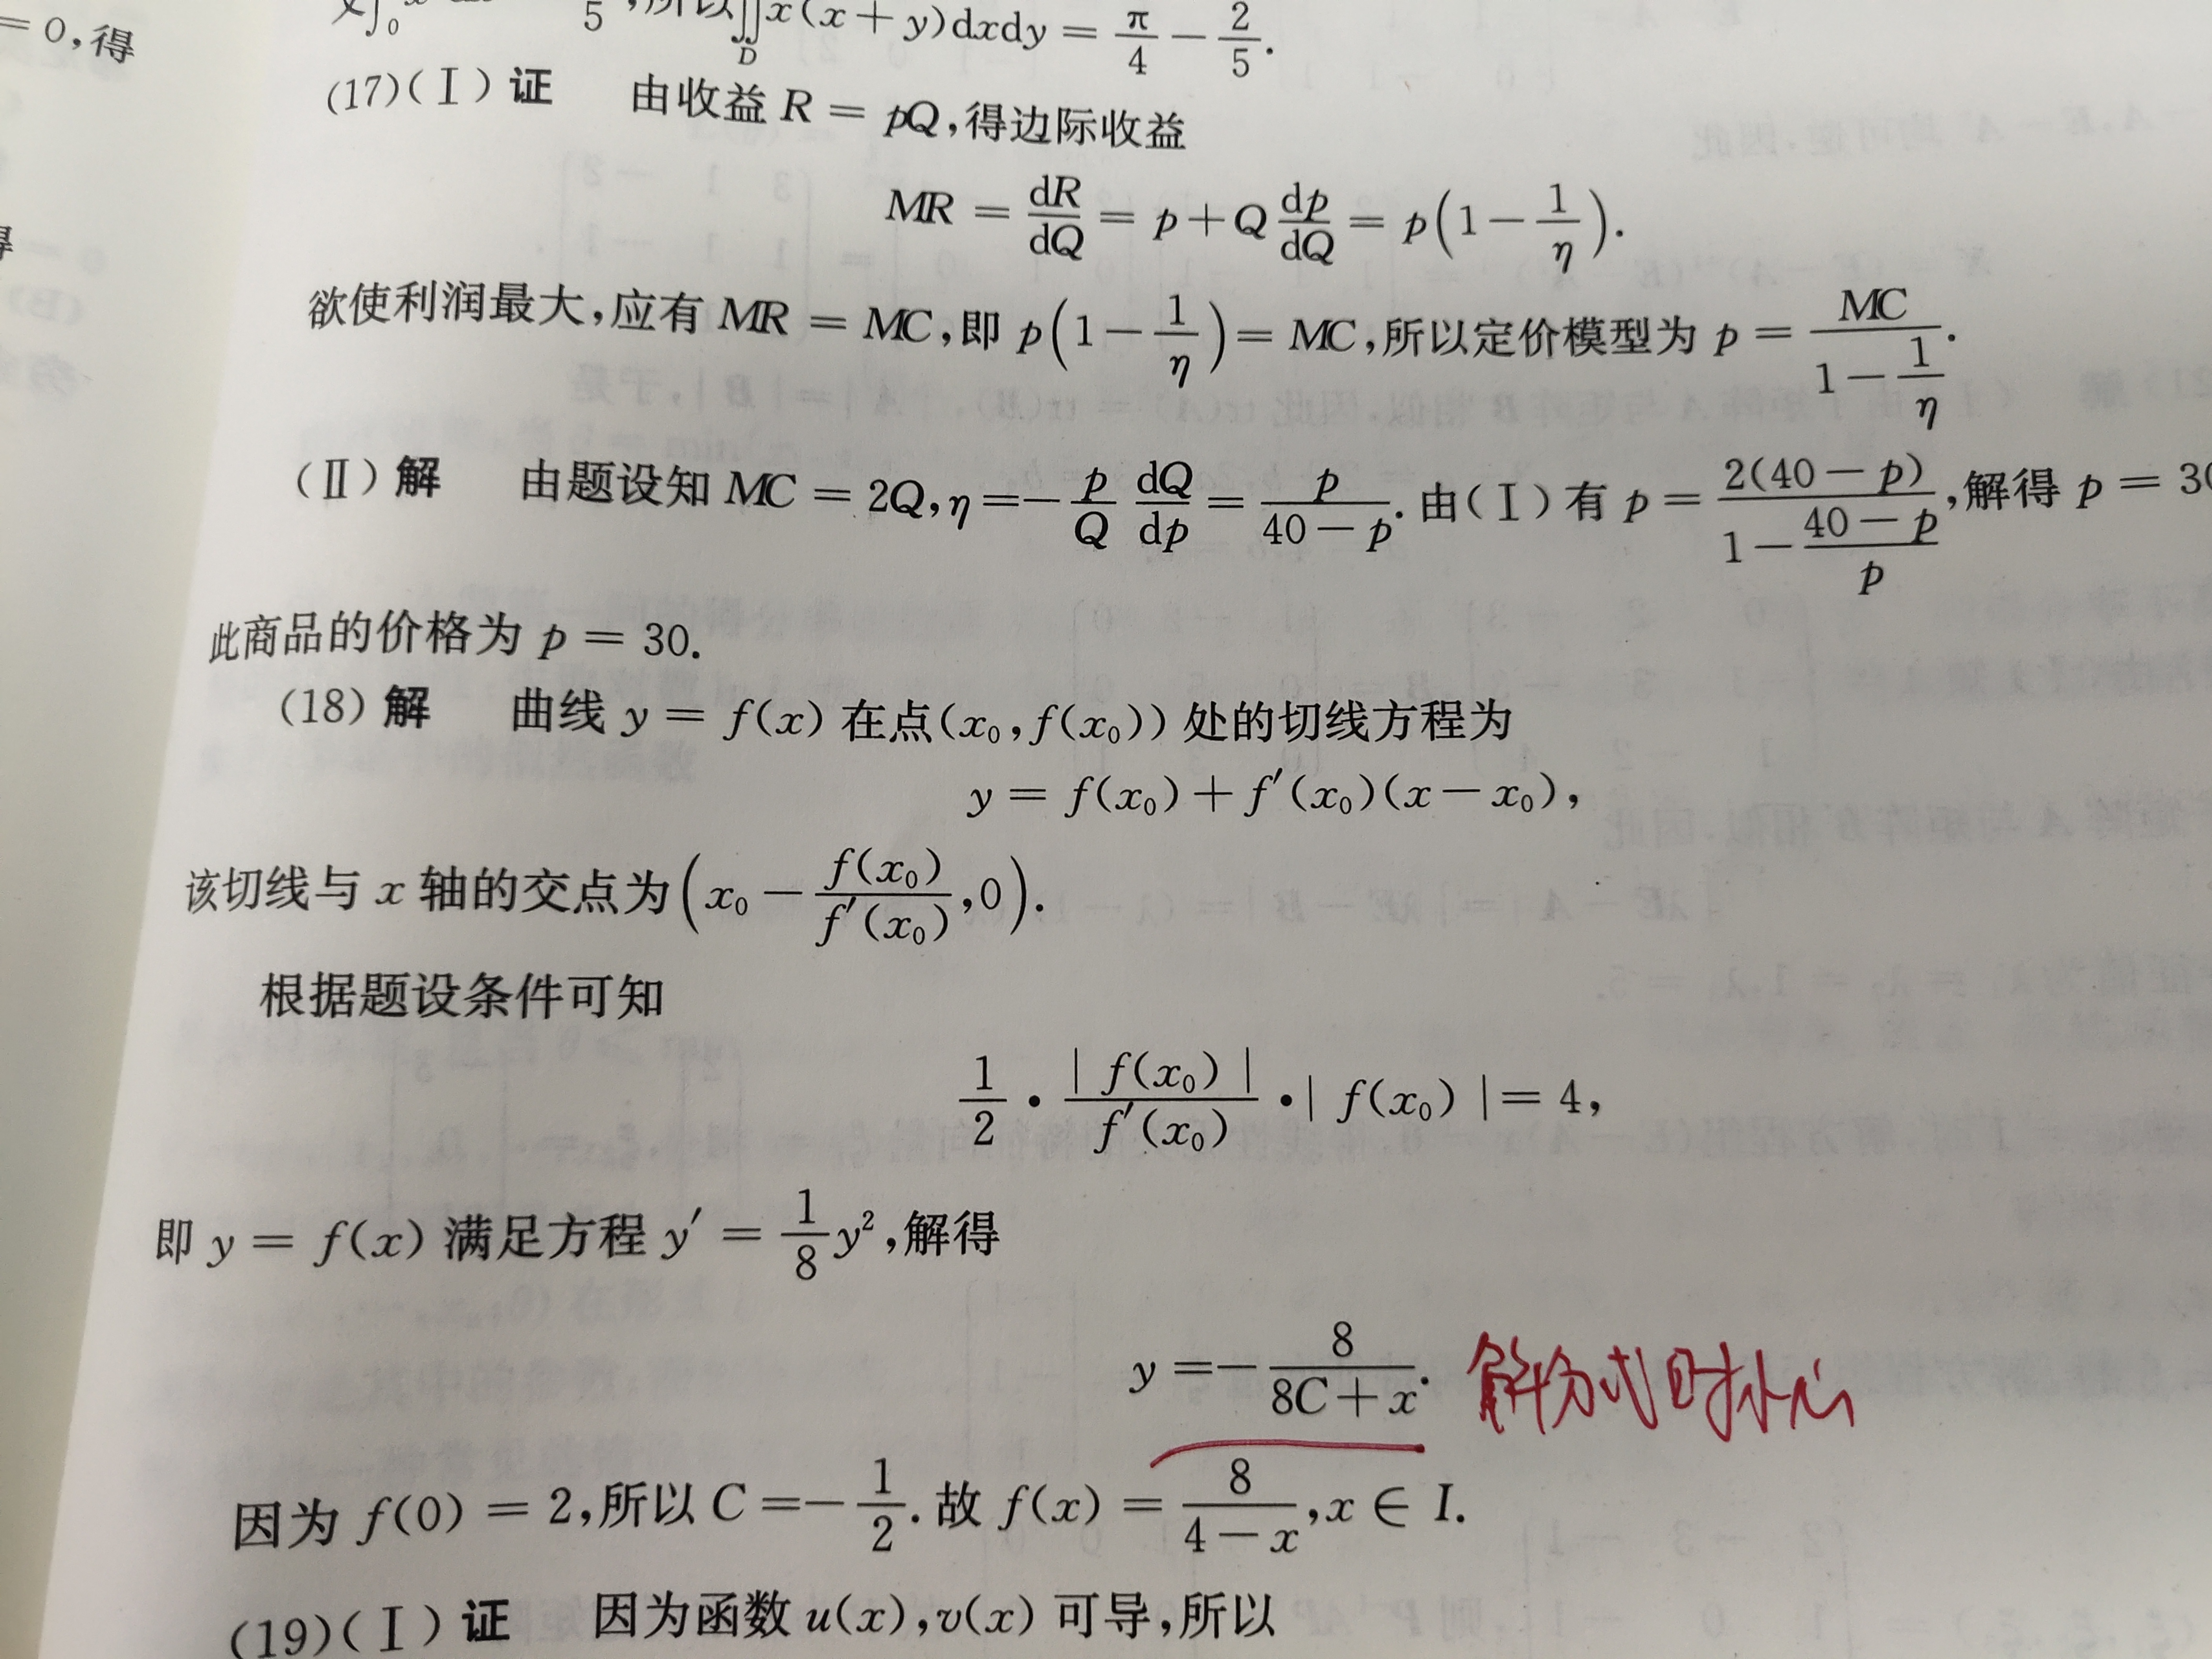 = 0,得
5 ,所以∬_D x(x + y)dxdy = π/4 − 2/5.
(17)(Ⅰ)证 由收益 R = pQ,得边际收益
MR = dR/dQ = p + Q dp/dQ = p(1 − 1/η).
欲使利润最大,应有 MR = MC,即 p(1 − 1/η) = MC,所以定价模型为 p = MC/(1 − 1/η).
(Ⅱ)解 由题设知 MC = 2Q,η = − p/Q dQ/dp = p/(40 − p). 由(Ⅰ)有 p = 2(40 − p)/(1 − (40 − p)/p),解得 p = 30
此商品的价格为 p = 30.
(18)解 曲线 y = f(x) 在点(x₀,f(x₀)) 处的切线方程为
y = f(x₀) + f′(x₀)(x − x₀),
该切线与 x 轴的交点为(x₀ − f(x₀)/f′(x₀),0).
根据题设条件可知
1/2 · | f(x₀) |/f′(x₀) · | f(x₀) | = 4,
即 y = f(x) 满足方程 y′ = 1/8 y²,解得
y = − 8/(8C + x). 解方式时小心
因为 f(0) = 2,所以 C = − 1/2. 故 f(x) = 8/(4 − x),x ∈ I.
(19)(Ⅰ)证 因为函数 u(x),v(x) 可导,所以